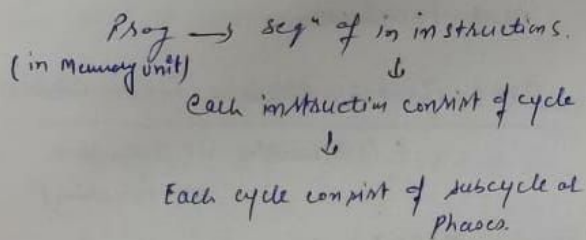 Prog → seqⁿ of in instructions.
(in Memory unit)
↓
Each instruction consist of cycle
↓
Each cycle consist of subcycle or
phases.